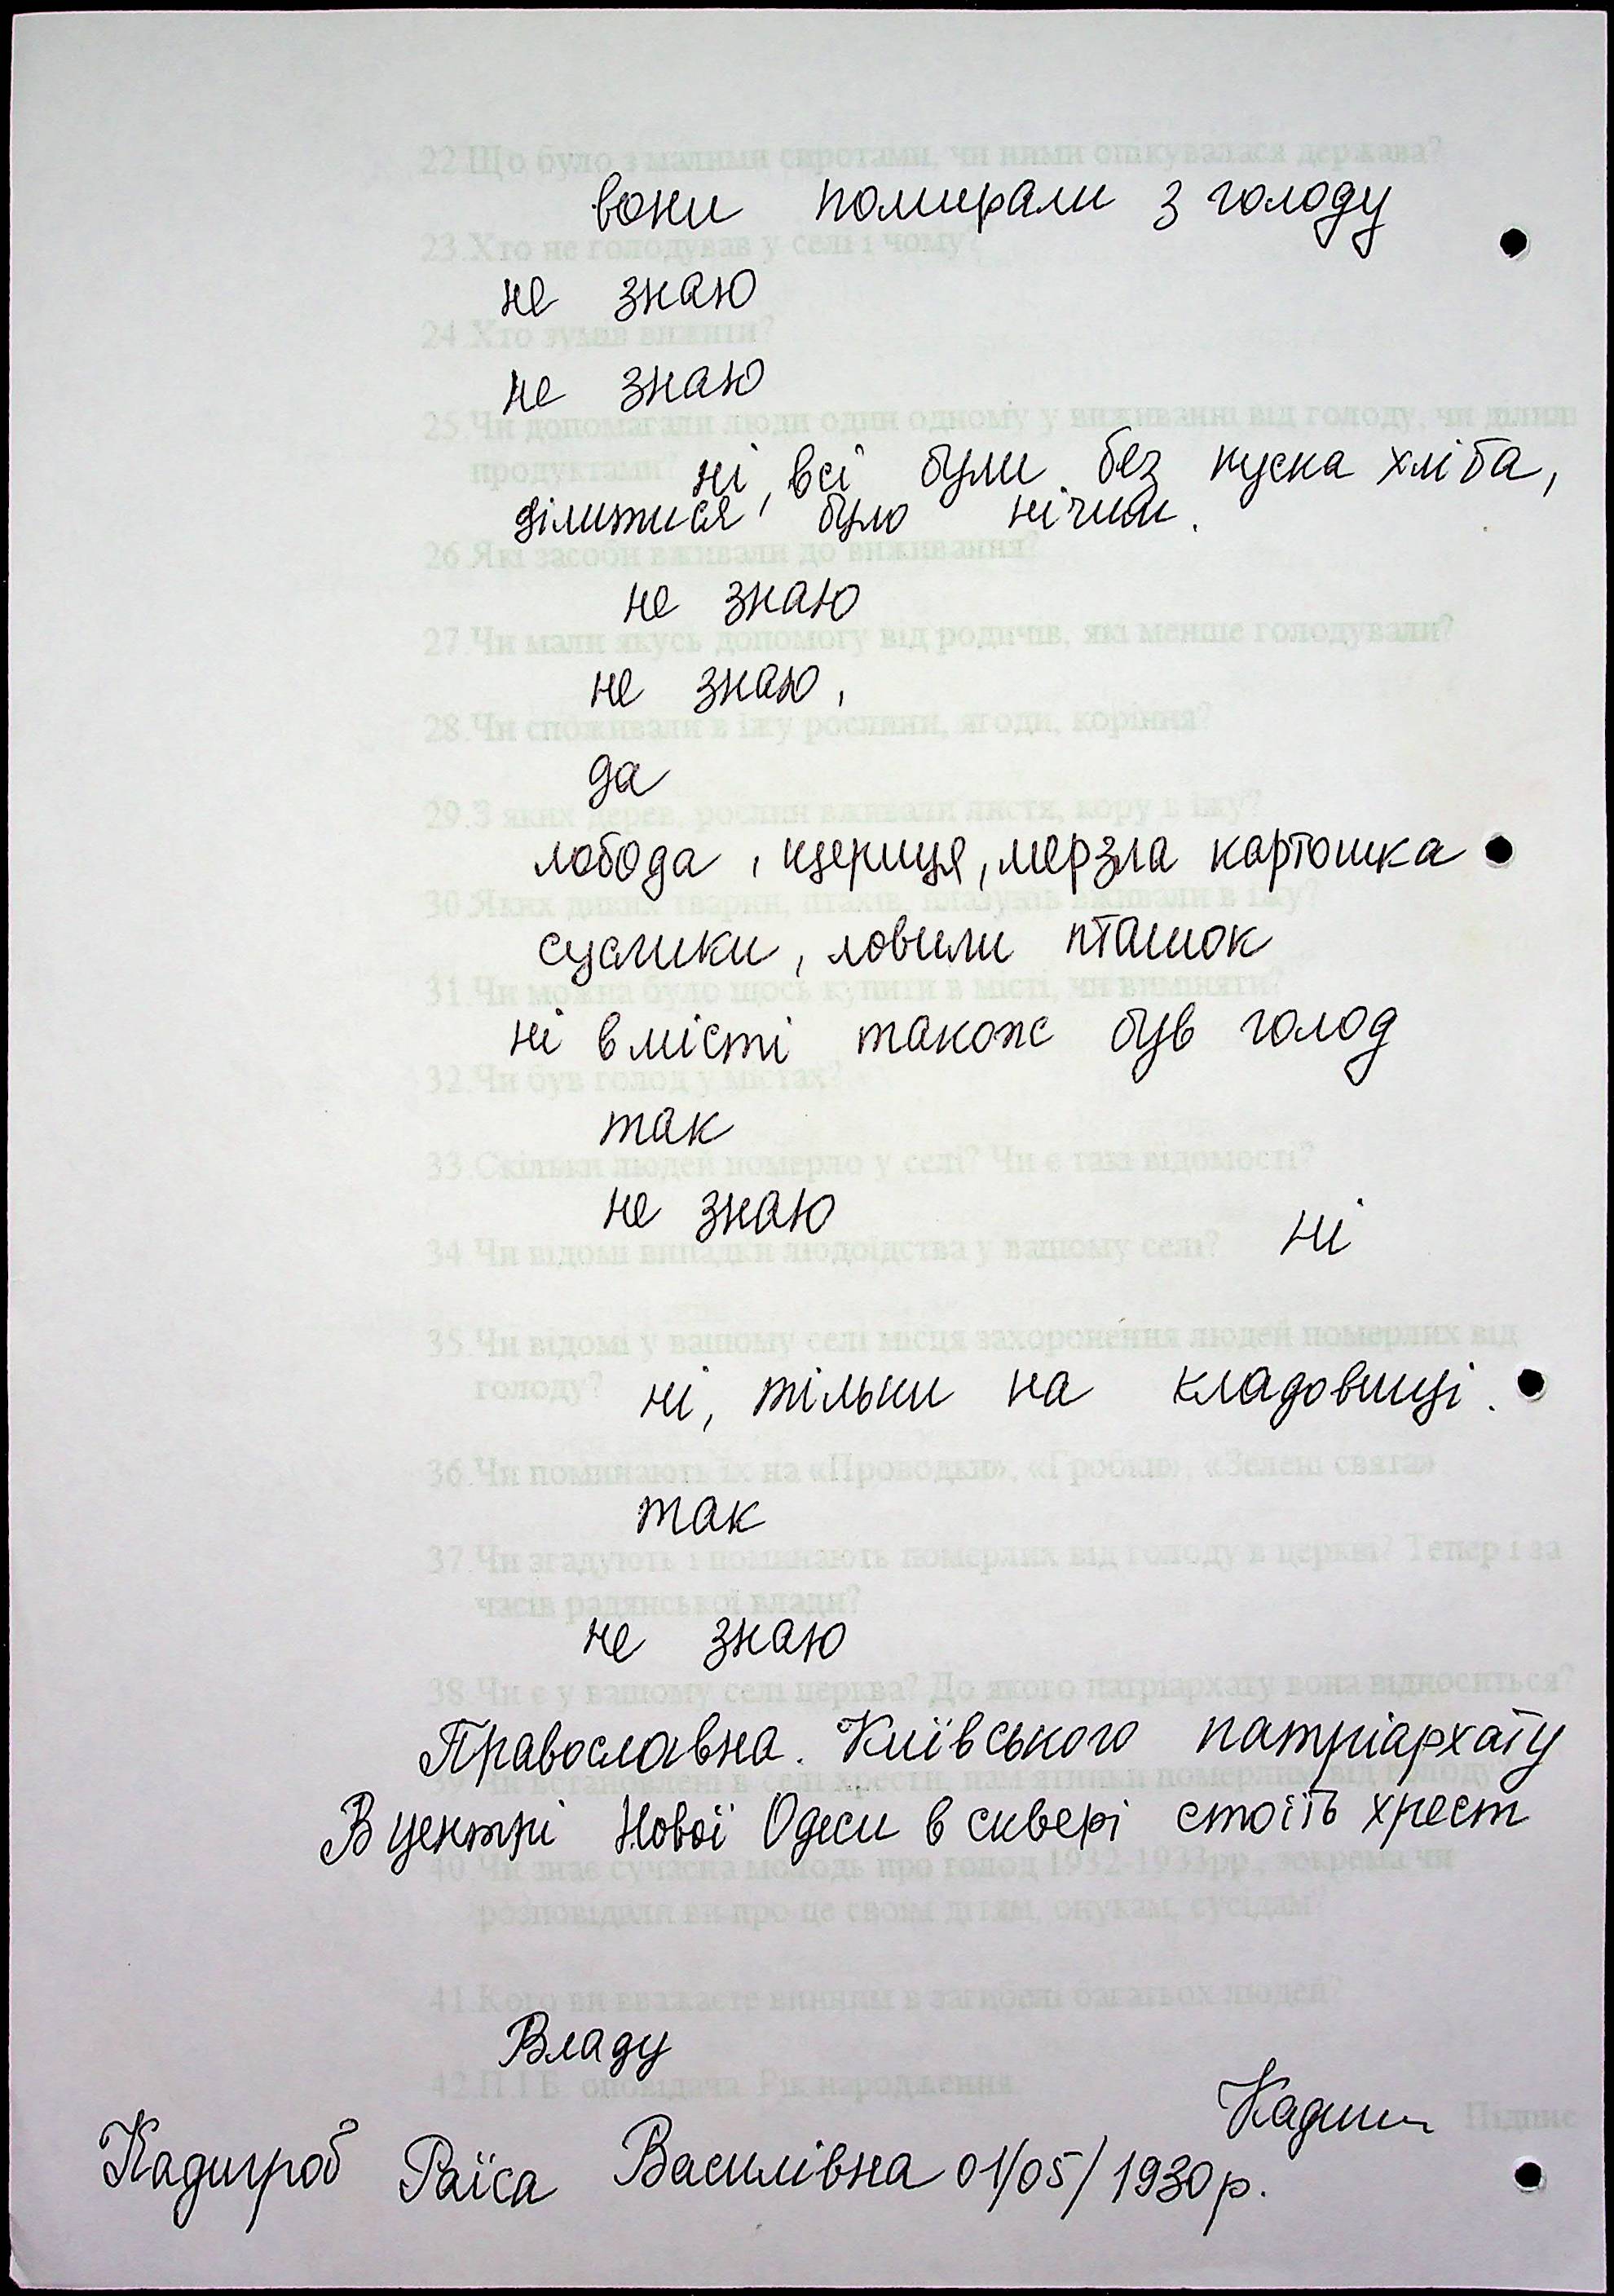 22.Що було з малими сиротами, чи ними опікувалася держава?
вони помирали з голоду
23.Хто не голодував у селі і чому?
не знаю
24.Хто зумів вижити?
не знаю
25.Чи допомагали люди один одному у виживанні від голоду, чи ділили
продуктами? ні, всі були без куска хліба,
ділитися було нічим.
26.Які засоби вживали до виживання?
не знаю
27.Чи мали якусь допомогу від родичів, які менше голодували?
не знаю,
28.Чи споживали в їжу рослини, ягоди, коріння?
да
29.З яких дерев, рослин вживали листя, кору в їжу?
лобода, щериця, мерзла картошка
30.Яких диких тварин, птахів, плазунів вживали в їжу?
суслики, ловили пташок
31.Чи можна було щось купити в місті, чи виміняти?
ні в місті також був голод
32.Чи був голод у містах?
так
33.Скільки людей померло у селі? Чи є такі відомості?
не знаю
34.Чи відомі випадки людоїдства у вашому селі? ні
35.Чи відомі у вашому селі місця захоронення людей померлих від
голоду? ні, тільки на кладовищі.
36.Чи поминають їх на «Проводки», «Гробки», «Зелені свята»
так
37.Чи згадують і поминають померлих від голоду в церкві? Тепер і за
часів радянської влади?
не знаю
38.Чи є у вашому селі церква? До якого патріархату вона відноситься?
Православна. Київського патріархату
39.Чи встановлені в селі хрести, пам'ятники померлим від голоду
В центрі Нової Одеси в сквері стоїть хрест
40.Чи знає сучасна молодь про голод 1932-1933рр., зокрема чи
розповідали ви про це своїм дітям, онукам, сусідам?
41.Кого ви вважаєте винним в загибелі багатьох людей?
Владу
42.П.І.Б. оповідача. Рік народження.
Підпис
Кадигроб Раїса Василівна 01/05/1930р.